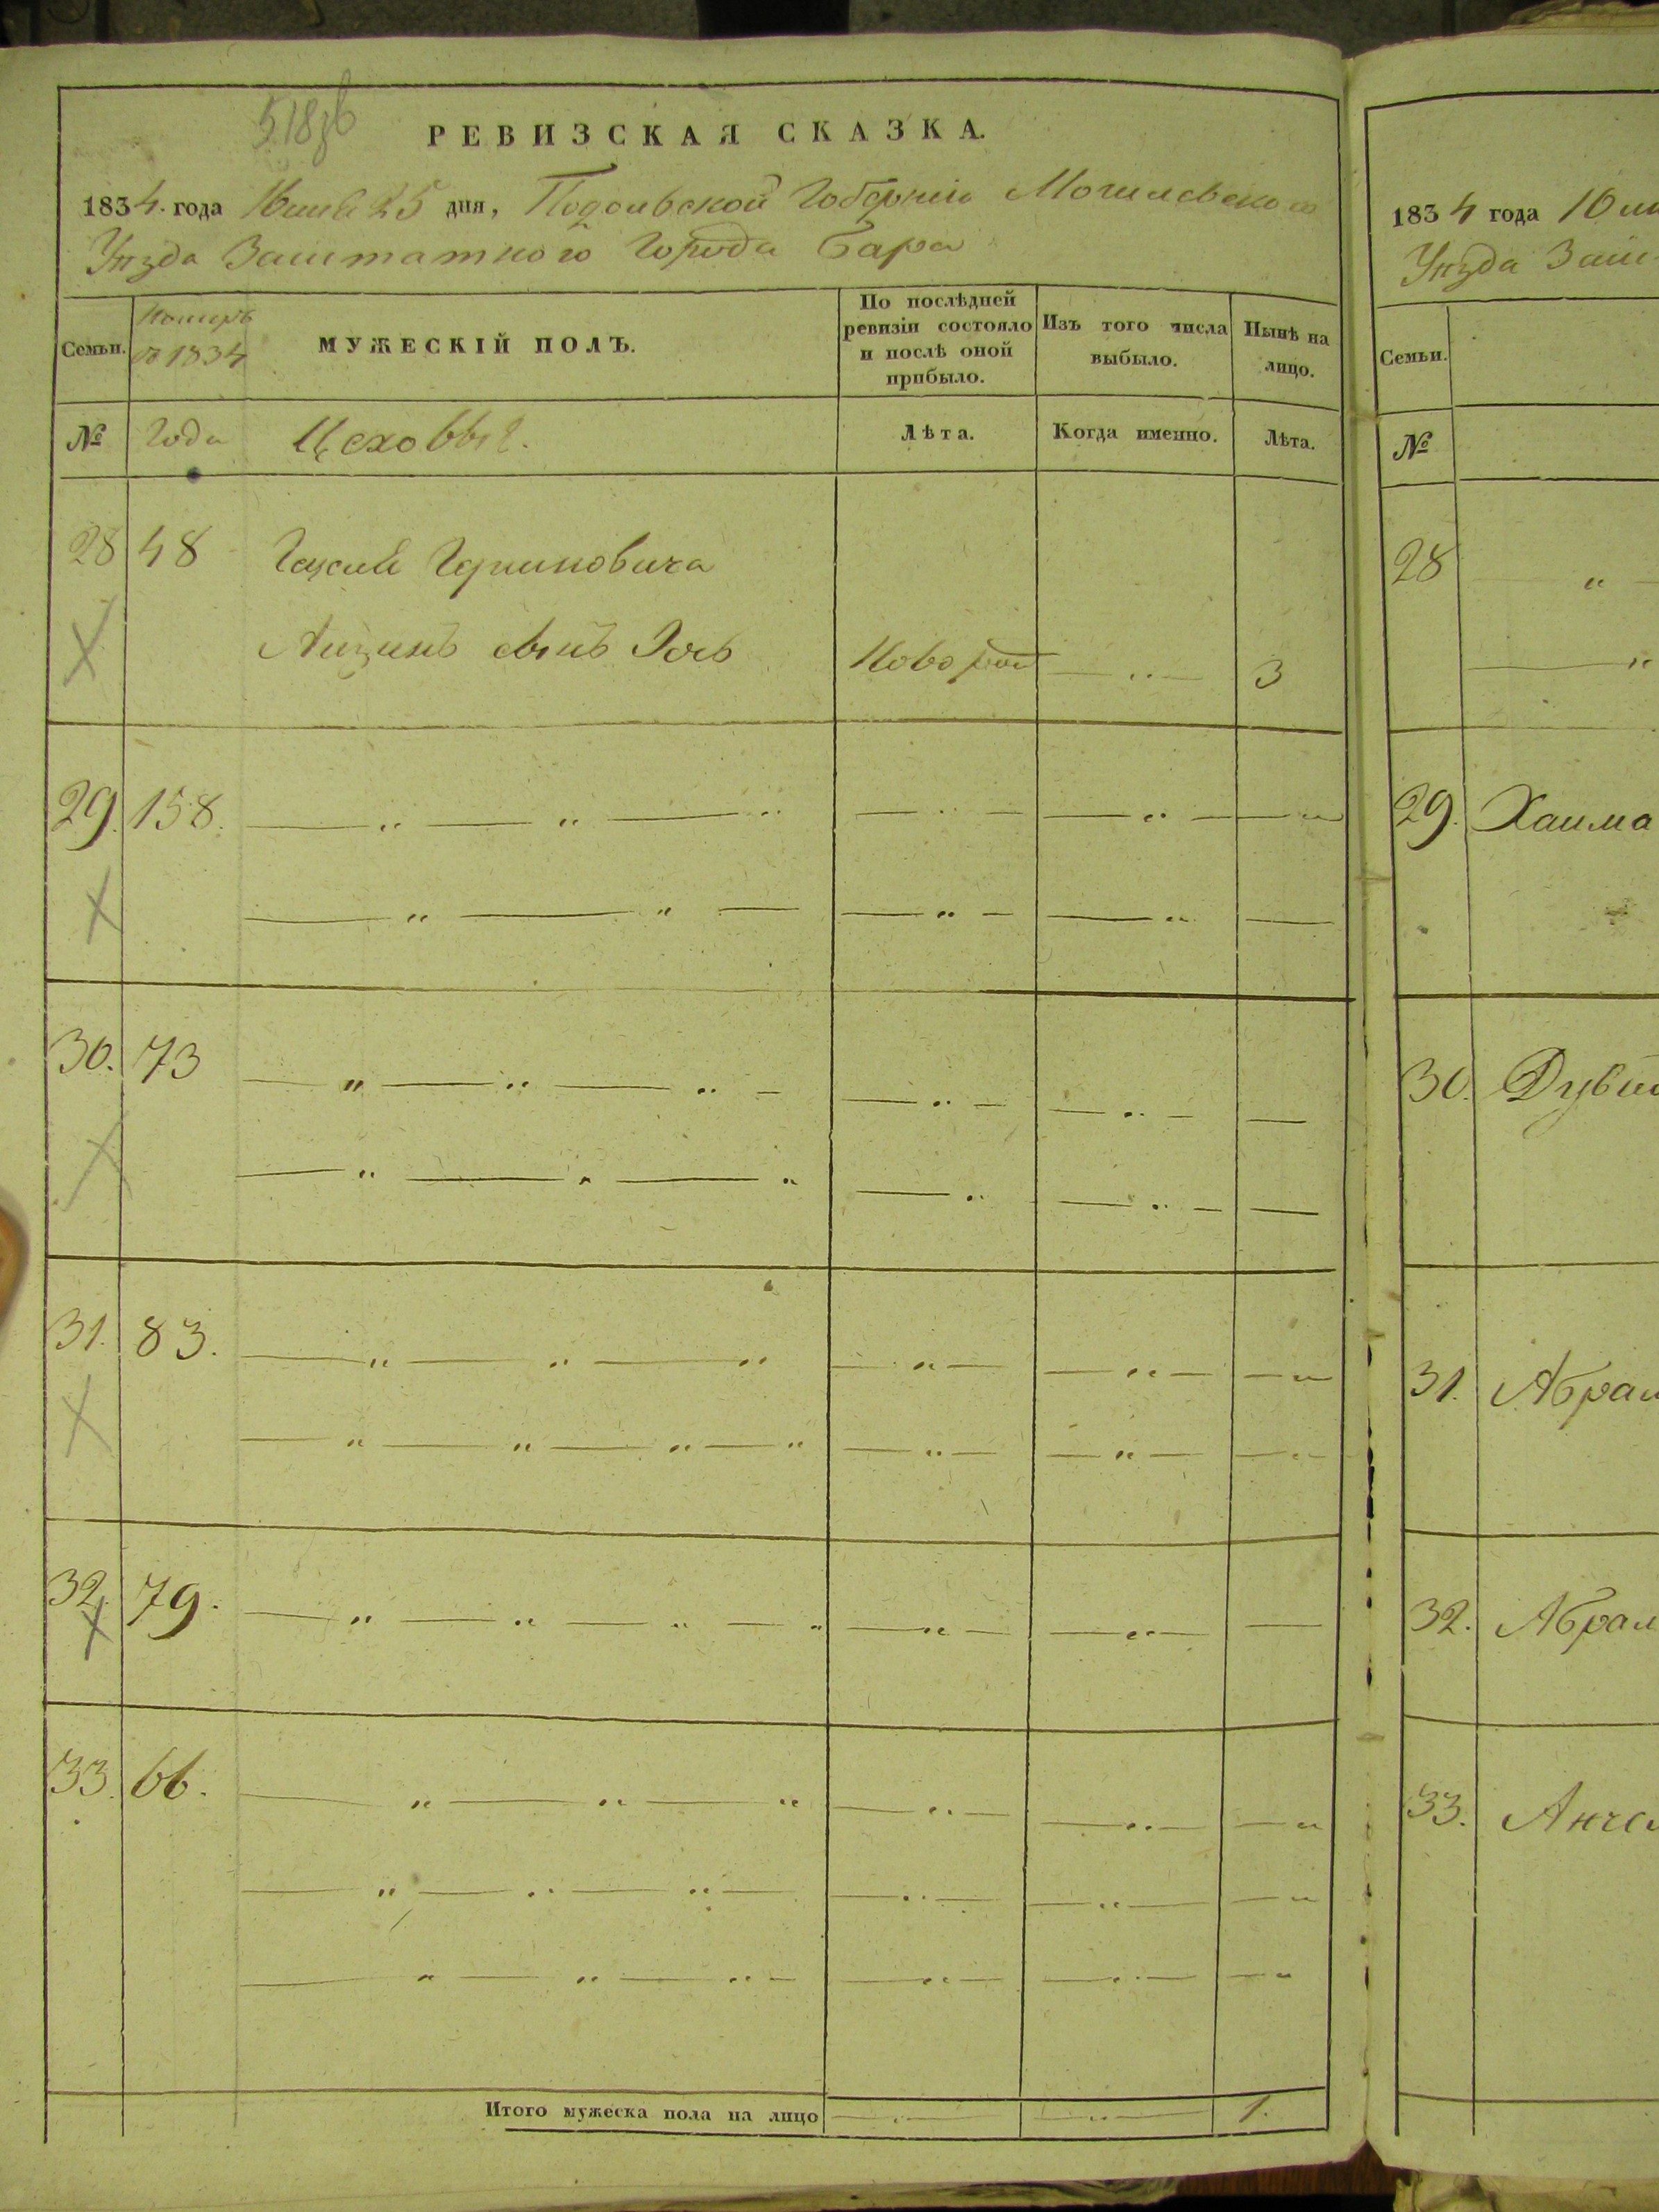 РЕВИЗСКАЯ СКАЗКА.
1834. года Июня 25 дня, Подольской Губерніи Могилевскаго
Уѣзда Заштатного Города Бара
Семьи.
Номеръ
въ 1834
МУЖЕСКІЙ ПОЛЪ.
По послѣдней
ревизіи состояло
и послѣ оной
прибыло.
Изъ того числа
выбыло.
Нынѣ на
лицо.
№
Года
Цеховыя.
Лѣта.
Когда именно.
Лѣта.
28 48
сынъ Іось Новорож — „ — 3
29. 158. — „ — „ — „ — „ — — „ — — „
— „ — „ — — „ — — „ —
30. 73 — „ — „ — „ — — „ — — „ — —
— „ — „ — „ — „ — „ — —
31. 83. — „ — „ — „ — „ — — „ — — „
— „ — „ — „ — „ — „ — — „ — — „
32. 79. — „ — „ — „ — „ — „ — — „ — —
33. 66. — „ — „ — „ — „ — — „ — — „
— „ — „ — „ — — „ — — „ — — „
— „ — „ — „ — — „ — — „ — — „
Итого мужеска пола на лицо — „ — — „ — 1.
1834 года Июн
Уѣзда Заш
Семьи.
№
28 — „ —
— „
29. Хаима
30. Дувид
31. Абрам
32. Абрам
33.